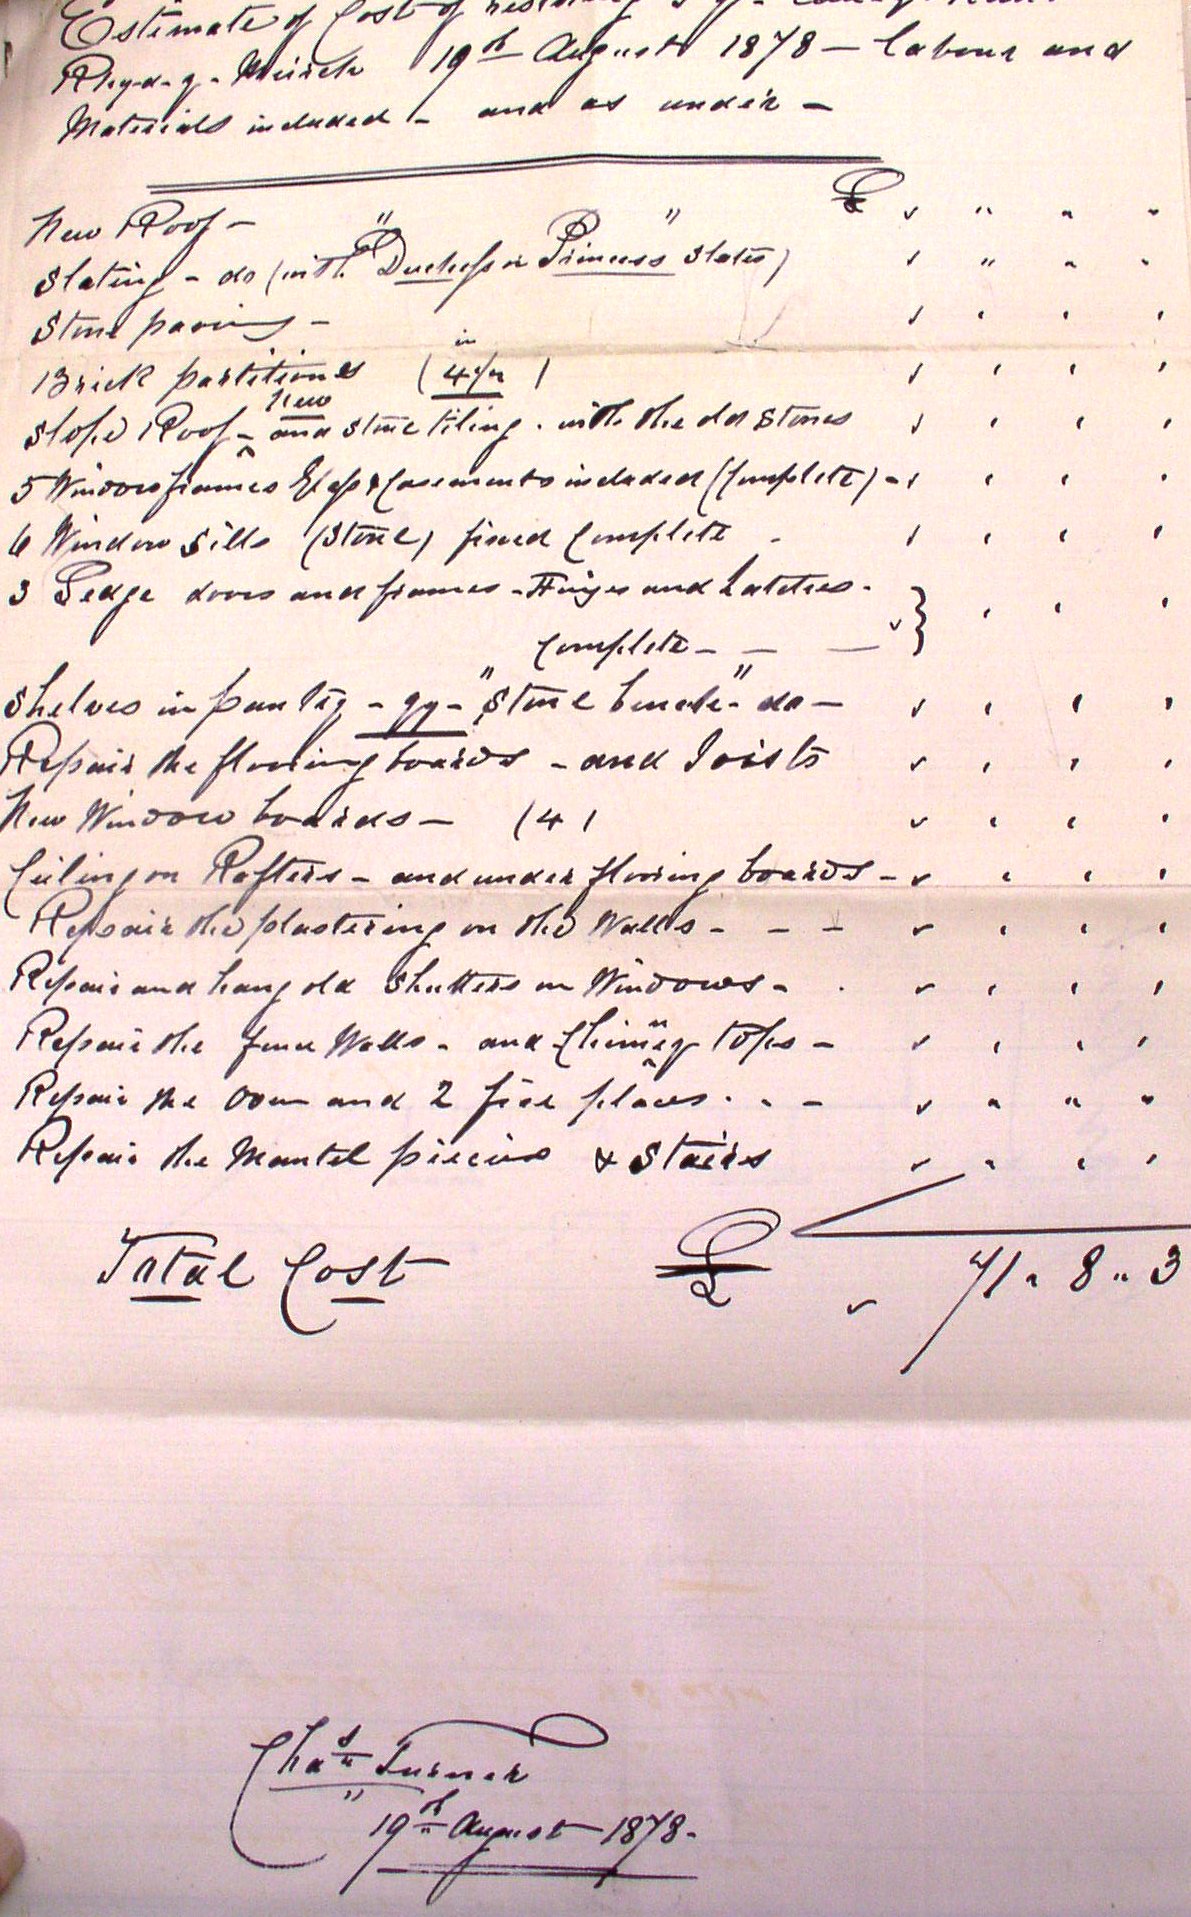 Estimate of Cost of restoring
Rhyd-y-Meirch 19th August 1878 — labour and
Materials included - and as under —
New Roof — £ " " "
Slating - do (with "Duchess or Princess" Slates) " " "
Stone paving -
Brick partitions (4½ in)
Slope Roof - new and stone tiling - with the old stones
5 Window frames Glass & Casements included (Complete) -
6 Window Sills (Stone) fixed Complete -
3 Ledge doors and frames - Hinges and Latches -
Complete - — —
Shelves in pantry - "Stone bench" do —
Repair the flooring boards - and Joists
New Window boards — (4)
Ceiling on Rafters - and under flooring boards -
Repair the plastering on the Walls - - -
Repair and hang old Shutters on Windows - .
Repair the Walls - and Chimney tops -
Repair the Oven and 2 fire places - - - " " "
Repair the Mantel pieces & Stairs
Total Cost £ 71 " 8 " 3
Chas Turner
19th August 1878 -